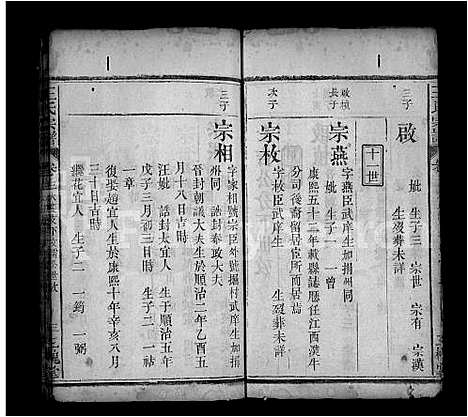 三子
啟
妣 生子三 宗世 宗有 宗漢
生歿葬未詳
十一世
啟楨
長子
宗燕
字燕臣武庠生加捐州同
康熙五十二年載縣誌歷任江西漢牛
分司後裔留居任所 生子一 一曾
次子
宗枚
字枚臣武庠生 生歿葬未詳
三子
宗相
字家相號宗臣外號攝村武庠生加捐
州同 誥封奉政大夫
晉封朝議大夫生於順治二年乙酉五
月十八日吉時
汪妣 誥封太宜人 生於順治五年
戊子三月初三日時 生子二 一祜
一章
復娶趙宜人生於康熙十年辛亥八月
三十日吉時
繼花宜人 生子二 一鈞 一弼
王氏宗譜
三槐堂